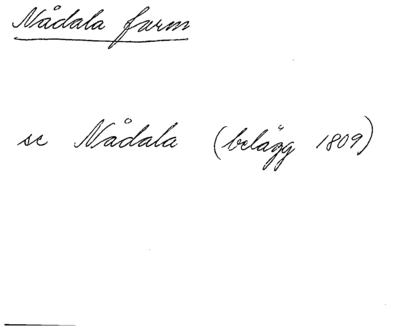 Nådala farm
se Nådala (belägg 1809)